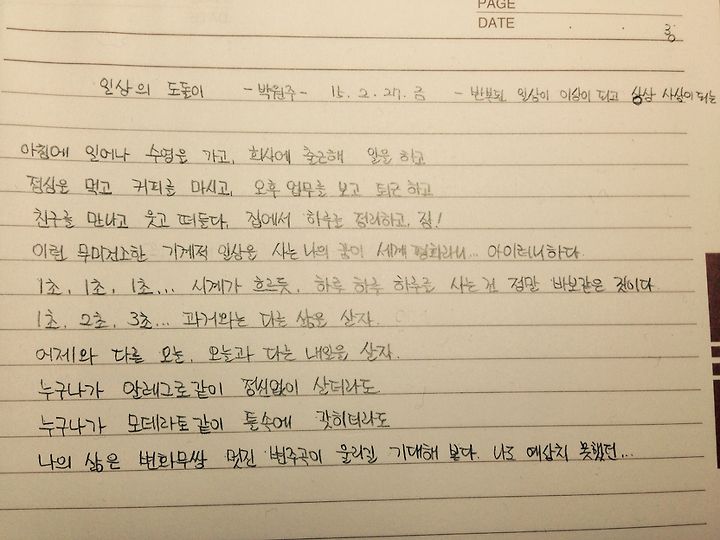 PAGE
DATE . .
일상의 도돌이 -박원주- 15. 2. 27. 금 - 반복된 일상이 이상이 되고 상상 사실이 되는
아침에 일어나 수영을 가고, 회사에 출근해 일을 하고
점심을 먹고 커피를 마시고, 오후 업무를 보고 퇴근하고
친구를 만나고 웃고 떠든다. 집에서 하루를 정리하고, 잠!
이런 무미건조한 기계적 일상을 사는 나의 꿈이 세계평화라니... 아이러니하다.
1초, 1초, 1초... 시계가 흐르듯, 하루 하루 하루를 사는건 정말 바보같은 것이다.
1초, 2초, 3초... 과거와는 다른 삶을 살자.
어제와 다른 오늘, 오늘과 다른 내일을 살자.
누구나가 알레그로같이 정신없이 살더라도
누구나가 모데라토같이 틀속에 갖히더라도
나의 삶은 변화무쌍 멋진 변주곡이 울리길 기대해 본다. 나도 예상치 못했던...